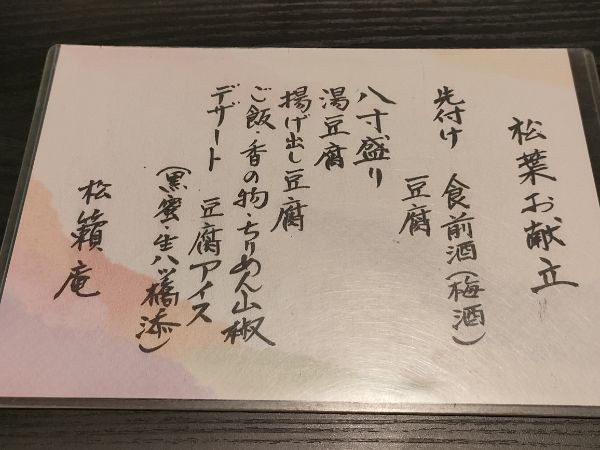 松葉お献立
先付け　食前酒(梅酒)
豆腐
八寸盛り
湯豆腐
揚げ出し豆腐
ご飯・香の物・ちりめん山椒
デザート　豆腐アイス
(黒蜜・生八ツ橋添)
松籟庵